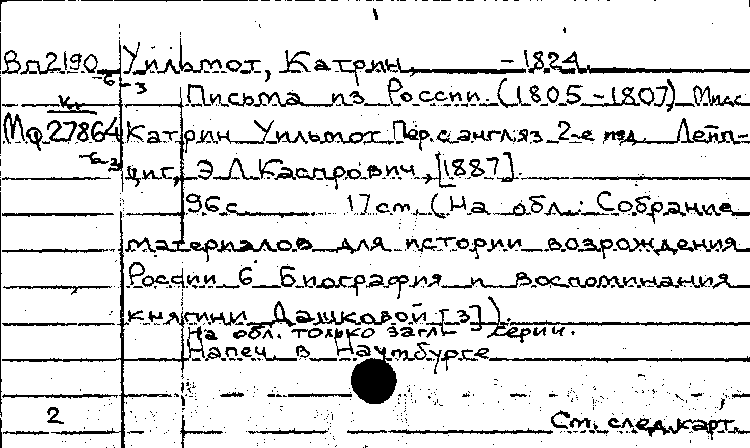 Вп2190 Уильмот, Катрин, -1824.
-6-3
Письма из России. (1805-1807) Мисс
Кн
Мф 27864 Катрин Уильмот Пер. с англ. яз. 2-е изд. Лейп-
-6-3
циг, Э. Л. Каспрович, [1887].
96 с. 17 см. (На обл.: Собрание
материалов для истории возрождения
России 6 Биография и воспоминания
княгини Дашковой [3]).
На обл. только загл. серии.
Напеч. в Наумбурге
2
См. след. карт.